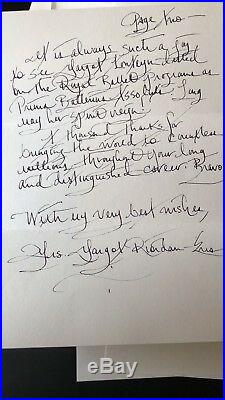 Page Two
It is always such a joy
to see Margot Fonteyn listed
in the Royal Ballet Programe as
Prima Ballerina Assoluta. Long
may her spirit reign.
A thousand thanks for
bringing the world to
millions throughout your long
and distinguished career. Bravo
With my very best wishes,
Yrs. Margot Riordan